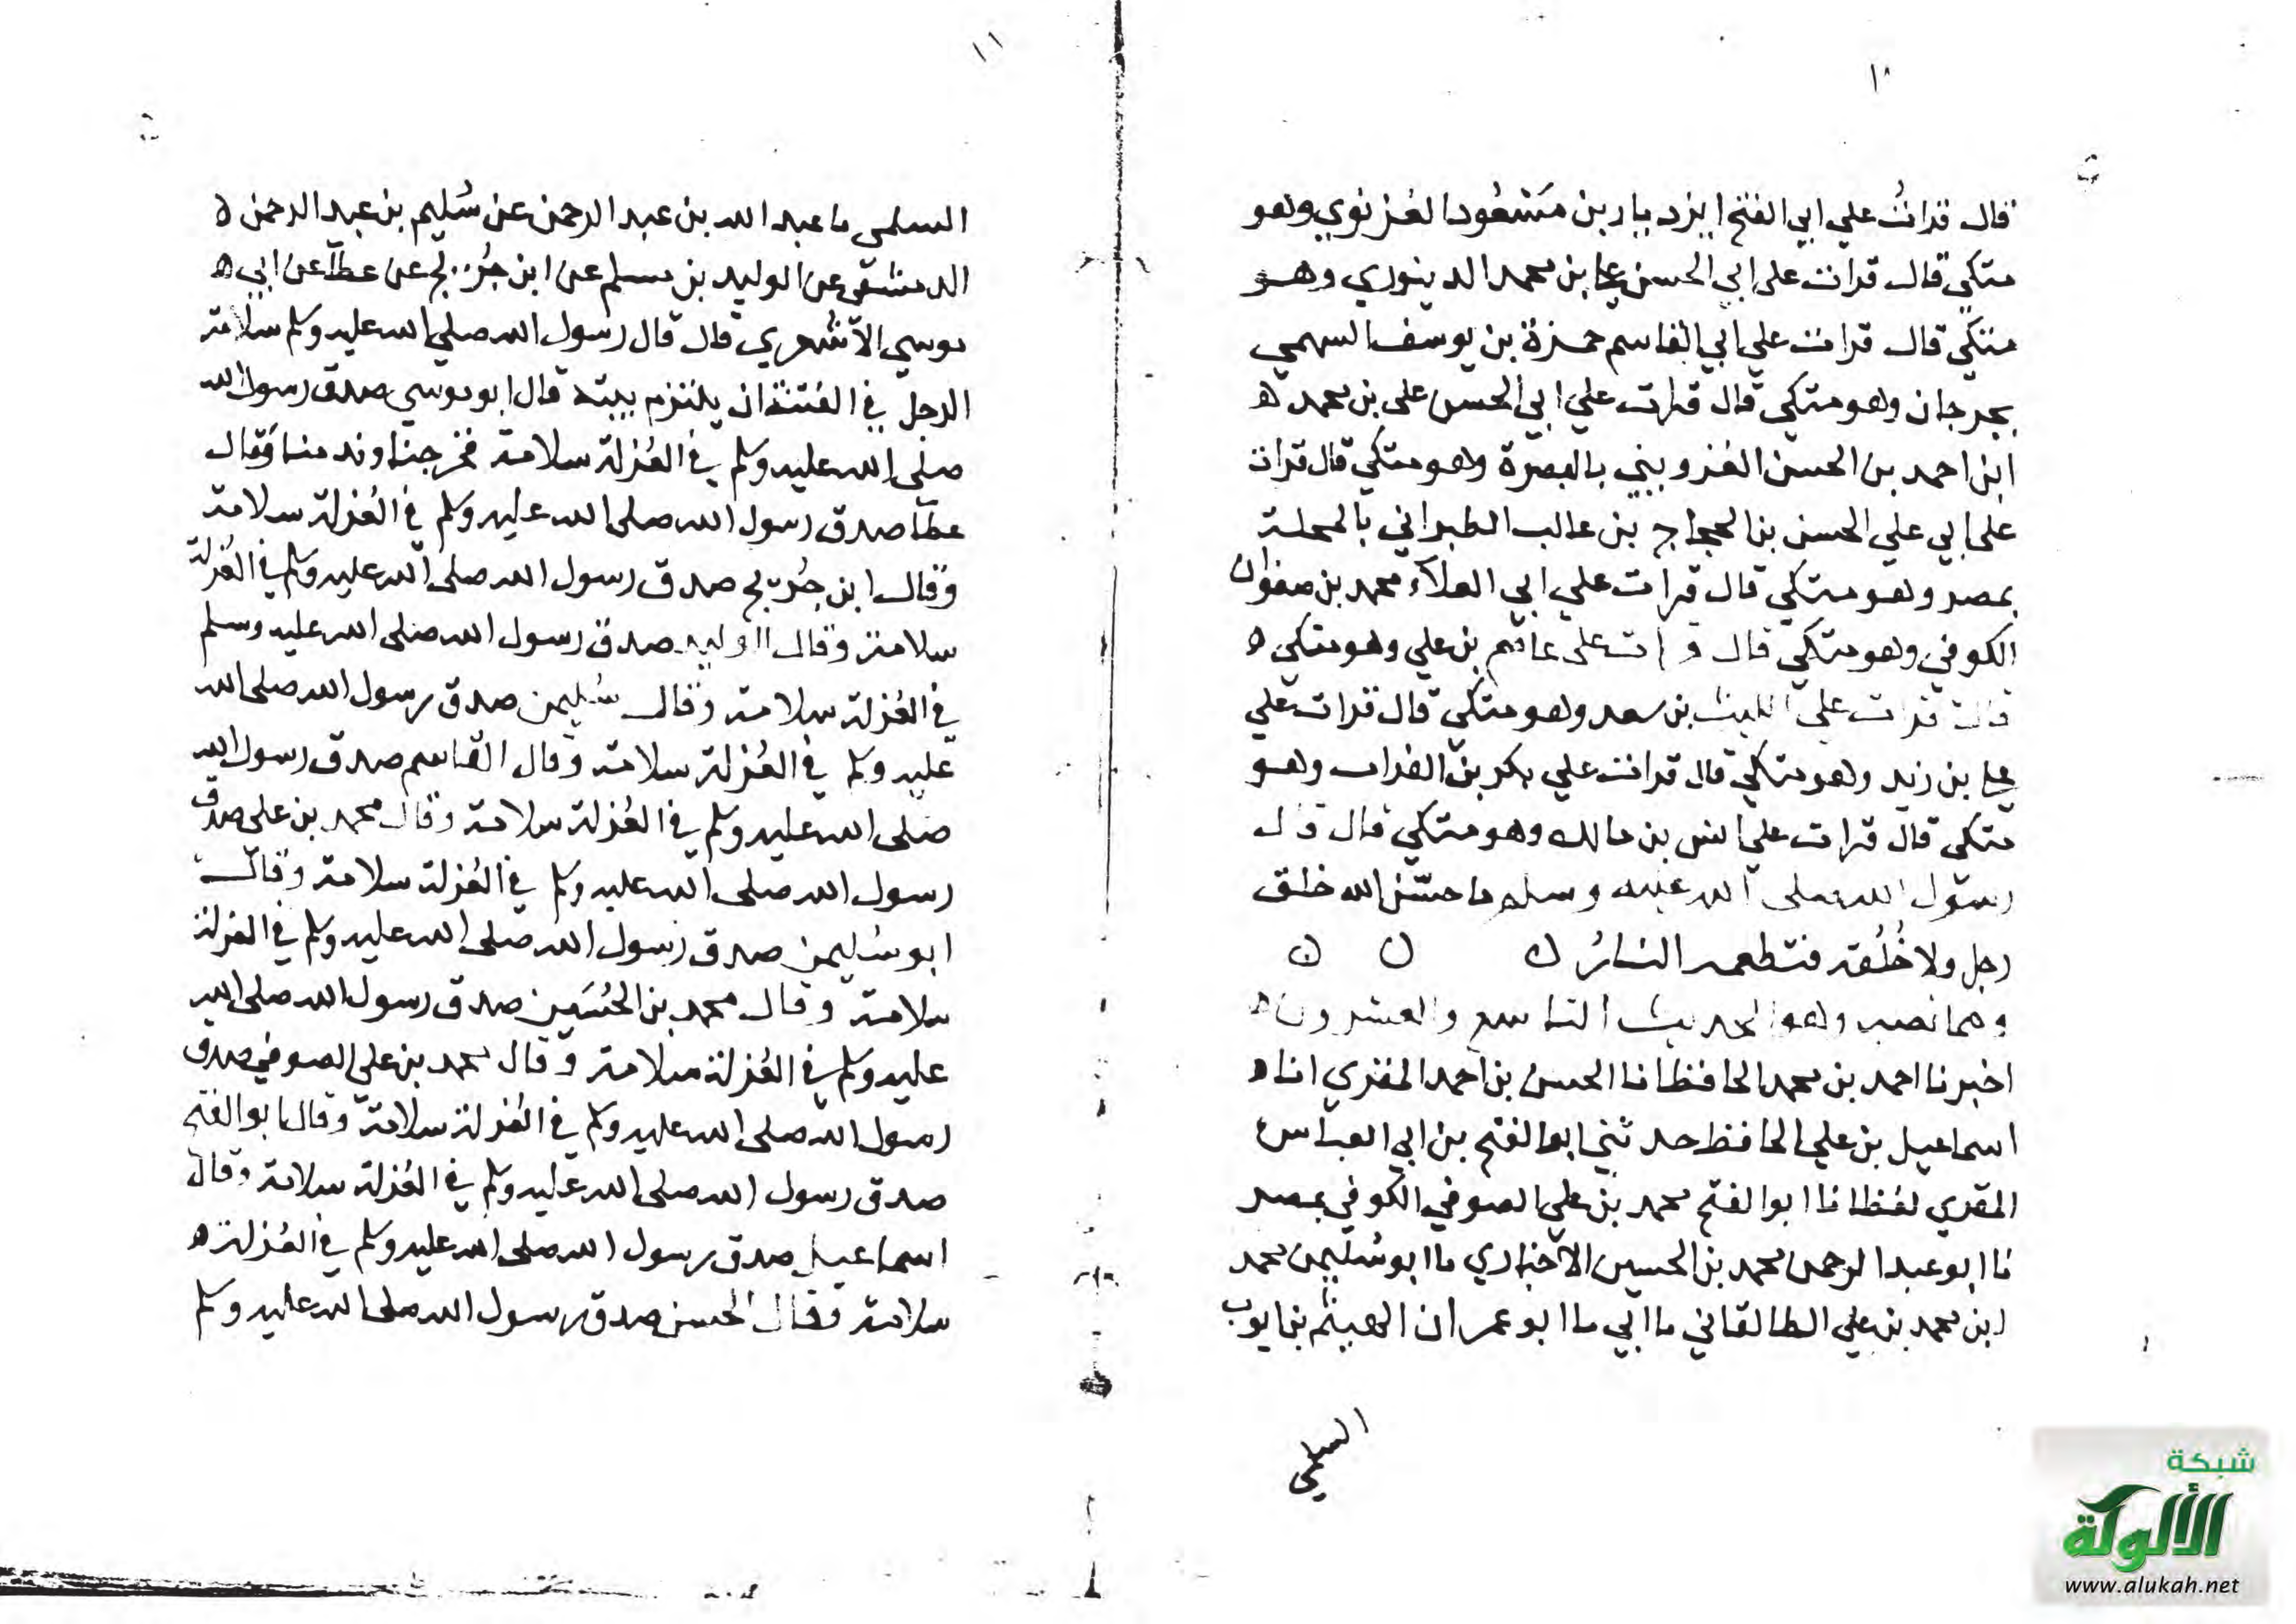 ١٠
قال قرات علي ابي الفتح ايزديار بن مسعود الغزنوي وهو
متكي قال قرات على ابي الحسن علي بن محمد الدينوري وهو
متكي قال قرات علي ابي القاسم حمزة بن يوسف السهمي
بجرجان وهو متكي قال قرات علي ابي الحسن علي بن محمد ه
ابن احمد بن الحسن القزويني بالبصرة وهو متكي قال قرات
على ابي علي الحسن بن الحجاج بن غالب الطبراني بالمحلة
بمصر وهو متكي قال قرات علي ابي العلاء محمد بن صفوان
الكوفي وهو متكي قال قرات على عاصم بن علي وهو متكي ه
قال قرات على الليث بن سعد وهو متكي قال قرات علي
علي بن زيد وهو متكي قال قرات علي بكر بن الفرات وهو
متكي قال قرات علي انس بن مالك وهو متكي قال قال
رسول الله صلى الله عليه وسلم ما حسّن الله خلق
رجل ولا خُلُقه فتطعمه النارُ ن ن ن
ومما نصه وهو الحديث التاسع والعشرون ه
اخبرنا احمد بن محمد الحافظ انا الحسن بن احمد المقري انا ه
اسماعيل بن علي الحافظ حدثني ابو الفتح بن ابي العباس
المقري لفظا نا ابو الفتح محمد بن علي الصوفي الكوفي بمصر
نا ابو عبد الرحمن محمد بن الحسين الاخباري ما ابو سُليمن محمد
ابن محمد بن علي الطالقاني ما ابي ما ابو عمران الهيثم بن ايوب
السلمي
١١
السلمي ما عبد الله بن عبد الرحمن عن سُليم بن عبد الرحمن ه
الدمشقي عن الوليد بن مسلم عن ابن جُريج عن عطآ عن ابي ه
موسي الاشعري قال قال رسول الله صلي الله عليه وسلم سلامة
الرجل في الفتنة ان يلتزم بيته قال ابو موسي صدق رسول الله
صلى الله عليه وسلم في العُزلة سلامة فخرجنا وندمنا وقال
عطآ صدق رسول الله صلى الله عليه وسلم في العُزلة سلامة
وقال ابن جُريج صدق رسول الله صلى الله عليه وسلم في العُزلة
سلامة وقال الوليد صدق رسول الله صلى الله عليه وسلم
في العُزلة سلامة وقال سُليمن صدق رسول الله صلى الله
عليه وسلم في العُزلة سلامة وقال القاسم صدق رسول الله
صلى الله عليه وسلم في العُزلة سلامة وقال محمد بن علي صدق
رسول الله صلى الله عليه وسلم في العُزلة سلامة وقال
ابو سُليمن صدق رسول الله صلى الله عليه وسلم في العزلة
سلامة وقال محمد بن الحُسَين صدق رسول الله صلى الله
عليه وسلم في العُزلة سلامة وقال محمد بن علي الصوفي صدق
رسول الله صلى الله عليه وسلم في العُزلة سلامة وقال ابو الفتح
صدق رسول الله صلى الله عليه وسلم في العُزلة سلامة وقال
اسماعيل صدق رسول الله صلى الله عليه وسلم في العُزلة ه
سلامة وقال الحسن صدق رسول الله صلى الله عليه وسلم
شبكة
الألوكة
www.alukah.net